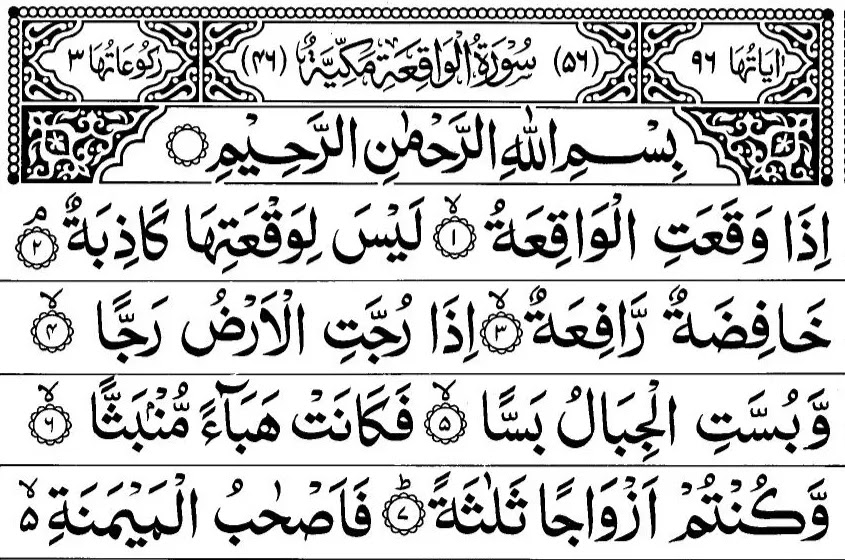 اٰيَاتُهَا ٩٦ (٥٦) سُوْرَةُ الْوَاقِعَةِ مَكِّيَّةٌ (٤٦) رُكُوْعَاتُهَا ٣
بِسْمِ اللّٰهِ الرَّحْمٰنِ الرَّحِيْمِ
اِذَا وَقَعَتِ الْوَاقِعَةُ ۙ﴿١﴾ لَيْسَ لِوَقْعَتِهَا كَاذِبَةٌ ۘ﴿٢﴾
خَافِضَةٌ رَّافِعَةٌ ۙ﴿٣﴾ اِذَا رُجَّتِ الْاَرْضُ رَجًّا ۙ﴿٤﴾
وَّبُسَّتِ الْجِبَالُ بَسًّا ۙ﴿٥﴾ فَكَانَتْ هَبَآءً مُّنْۢبَثًّا ۙ﴿٦﴾
وَّكُنْتُمْ اَزْوَاجًا ثَلٰثَةً ؕ﴿٧﴾ فَاَصْحٰبُ الْمَيْمَنَةِ ۙ۵